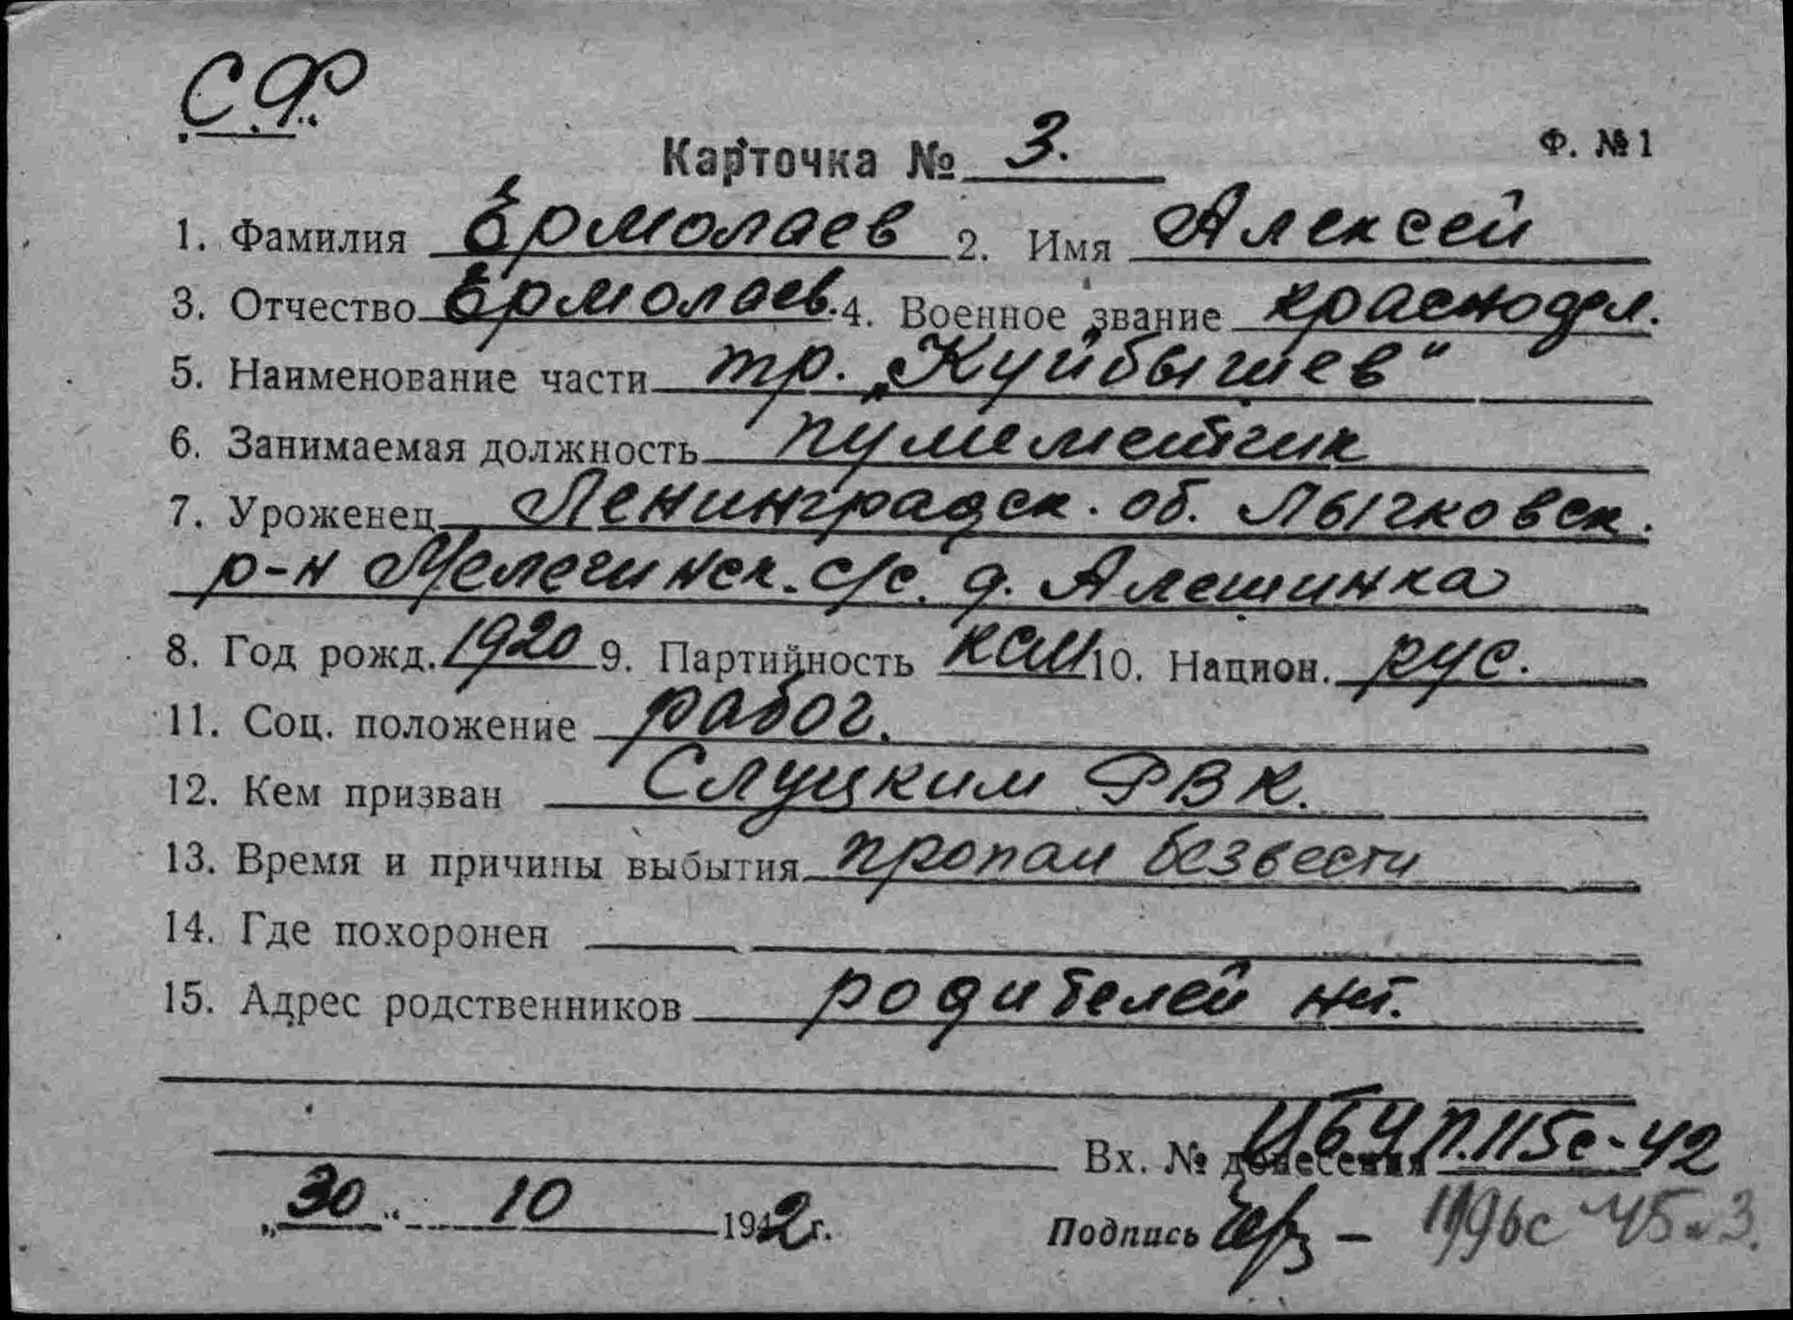 СФ.
Карточка № 3. Ф. № 1
1. Фамилия Ермолаев 2. Имя Алексей
3. Отчество Ермолаев. 4. Военное звание краснофл.
5. Наименование части тр. „Куйбышев“
6. Занимаемая должность пулеметчик
7. Уроженец Ленинградск. об. Лычковск.
р-н с/с. д. Алешинка
8. Год рожд. 1920 9. Партийность 10. Национ. рус.
11. Соц. положение рабоч.
12. Кем призван Слуцким РВК.
13. Время и причины выбытия пропал безвести
14. Где похоронен
15. Адрес родственников родителей нет.
Вх. № донесения п. 115с-42
„30“ 10 1942 г. Подпись